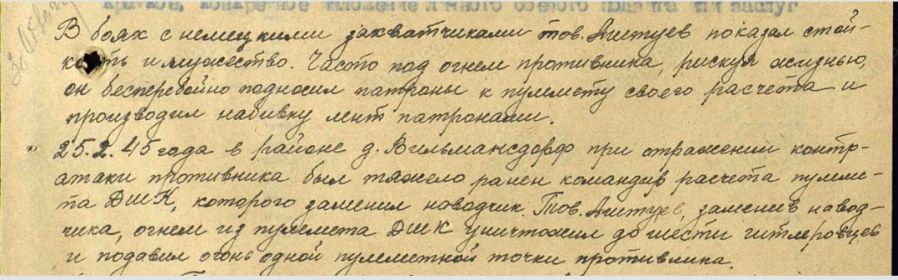 Краткое, конкретное изложение личного боевого подвига или заслуг
В боях с немецкими захватчиками тов. Аштуев показал стой-
кость и мужество. Часто под огнем противника, рискуя жизнью,
он бесперебойно подносил патроны к пулемету своего расчета и
производил набивку лент патронами.
25.2.45 года в районе д. Вильмансдорф при отражении контр-
атаки противника был тяжело ранен командир расчета пулеме-
та ДШК, которого заменил наводчик. Тов. Аштуев, заменив навод-
чика, огнем из пулемета ДШК уничтожил до шести гитлеровцев
и подавил огонь одной пулеметной точки противника.